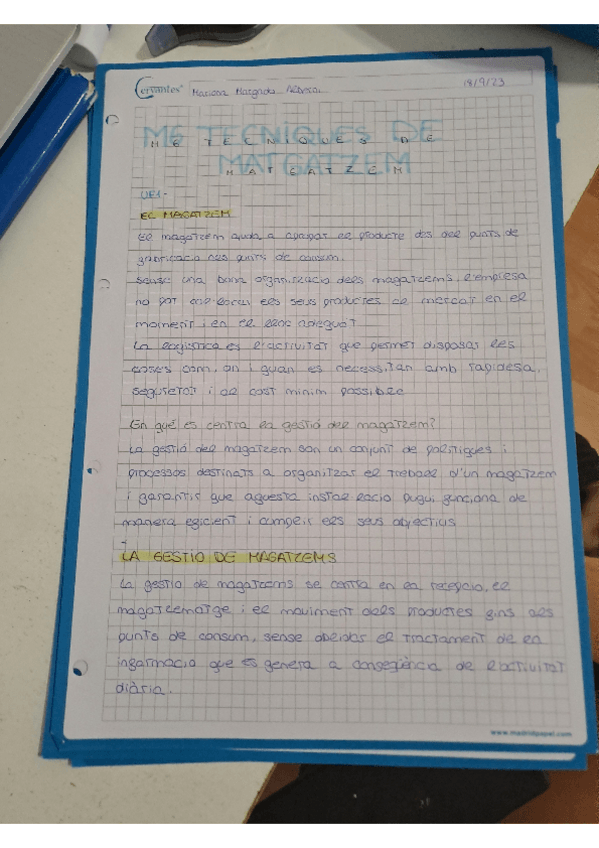 Cervantes Mariona 18/9/23
M6 TECNIQUES DE
M6 TECNIQUES DE
MATGATZEM
MATGATZEM
UF1-
EL MAGATZEM
El magatzem ajuda a apropar el producte des del punts de
fabricació als punts de consum.
Sense una bona organització dels magatzems, l'empresa
no pot col·locar els seus productes al mercat en el
moment i en el lloc adequat
La logística es l'activitat que permet disposar les
coses com, on i quan es necessitan amb rapidesa,
seguretat i al cost minim possible
En què es centra la gestió del magatzem?
La gestió del magatzem son un conjunt de polítiques i
processos destinats a organitzar el treball d'un magatzem
i garantir que aquesta instal·lació pugui funciona de
manera eficient i complir els seus objectius
-
LA GESTIO DE MAGATZEMS
La gestio de magatzems se centra en la recepcio, el
magatzematge i el moviment dels productes fins als
punts de consum, sense oblidar el tractament de la
informacio que es genera a conseqència de l'activitat
diària.
www.madridpapel.com